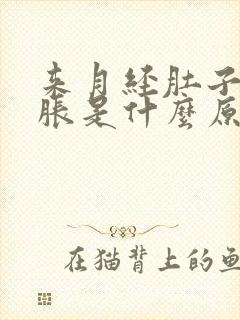 来月经肚子
胀是什麼原
在猫背上的鱼